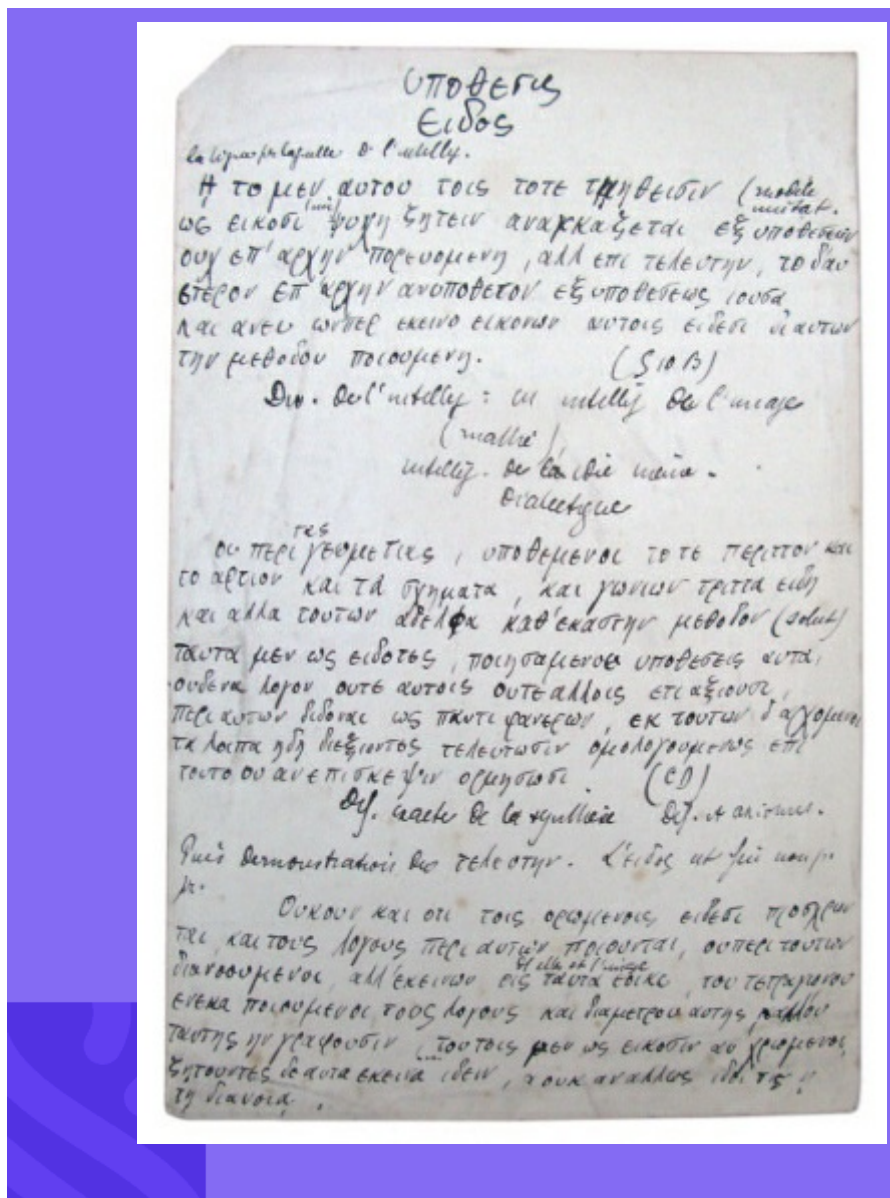 υποθεσις
ειδος
la ligne par laquelle de l'intellig.
Ἡ το μεν αυτου τοις τοτε τμηθεισιν (modèle
imitat.
ως εικοσι ψυχη ζητειν αναγκαζεται εξ υποθεσεων
ουχ επ' αρχην πορευομενη, αλλ επι τελευτην, το δ αυ
ετερον επ' αρχην ανυποθετον εξ υποθεσεως ιουσα
και ανευ ωνπερ εκεινο εικονων αυτοις ειδεσι δι αυτων
την μεθοδον ποιουμενη. (510 B)
Div. de l'intellig : intellig de l'image
(mathé)
intellig. de
dialectique
τας
οι περι γεομετιας, υποθεμενοι το τε περιττον και
το αρτιον και τα σχηματα, και γωνιων τριττα ειδη
και αλλα τουτων αδελφα καθ' εκαστην μεθοδον
ταυτα μεν ως ειδοτες, ποιησαμενοι υποθεσεις αυτα,
ουδενα λογον ουτε αυτοις ουτε αλλοις ετι αξιουσι,
περι αυτων διδοναι ως παντι φανερων, εκ τουτων δ αρχομενοι
τα λοιπα ηδη διεξιοντες τελευτωσιν ομολογουμενως επι
τουτο ου αν επι σκεψιν ορμησωσι (CD)
de la
demonstration τελευτην. L'ειδος
Ουκουν και οτι τοις ορωμενοις ειδεσι προσχρων
ται, και τους λογους περι αυτων ποιουνται, ου περι τουτων
et elle est l'image
διανοουμενοι, αλλ' εκεινων εις ταυτα εοικε, του τετραγωνου
ενεκα ποιουμενοι τους λογους και διαμετρου αυτης, αλλ ου
ταυτης ην γραφουσιν, τουτοις μεν ως εικοσιν αυ χρωμενοι,
ζητουντες δε αυτα εκεινα ιδειν, α ουκ αν αλλως ιδοι τις η
τη διανοια.